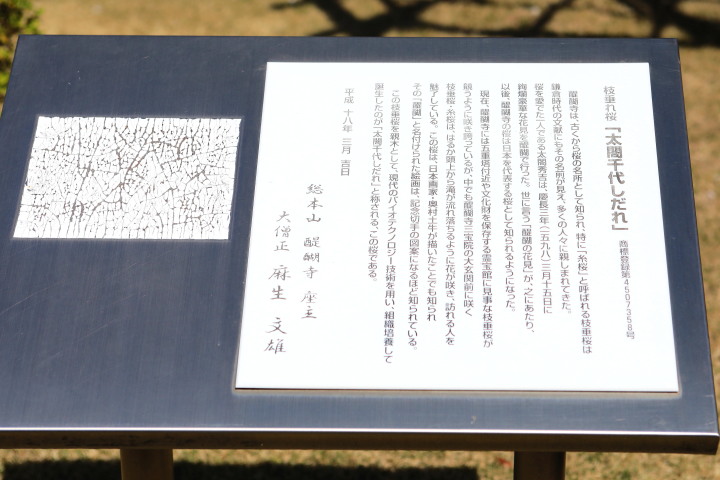 枝垂れ桜 「太閤千代しだれ」 商標登録第4507358号
醍醐寺は、古くから桜の名所として知られ、特に「糸桜」と呼ばれる枝垂桜は
鎌倉時代の文献にもその名前が見え、多くの人々に親しまれてきた。
桜を愛でた一人である太閤秀吉は、慶長三年(一五九八)三月十五日に
絢爛豪華な花見を醍醐で行った。世に言う「醍醐の花見」が、之にあたり、
以後、醍醐寺の桜は日本を代表する桜として知られるようになった。
現在、醍醐寺には五重塔付近や文化財を保存する霊宝館に見事な枝垂桜が
競うように咲き誇っているが、中でも醍醐寺三宝院の大玄関前に咲く
枝垂桜・糸桜は、はるか頭上から滝が流れ落ちるように花が咲き、訪れる人を
魅了している。この桜は、日本画家・奥村土牛が描いたことでも知られ
その「醍醐」と名付けられた絵画は、記念切手の図案になるほど知られている。
この枝垂桜を親木として、現代のバイオテクノロジー技術を用い、組織培養して
誕生したのが「太閤千代しだれ」と称される、この桜である。
平成十八年 三月 吉日
総本山 醍醐寺 座主
大僧正 麻生 文雄